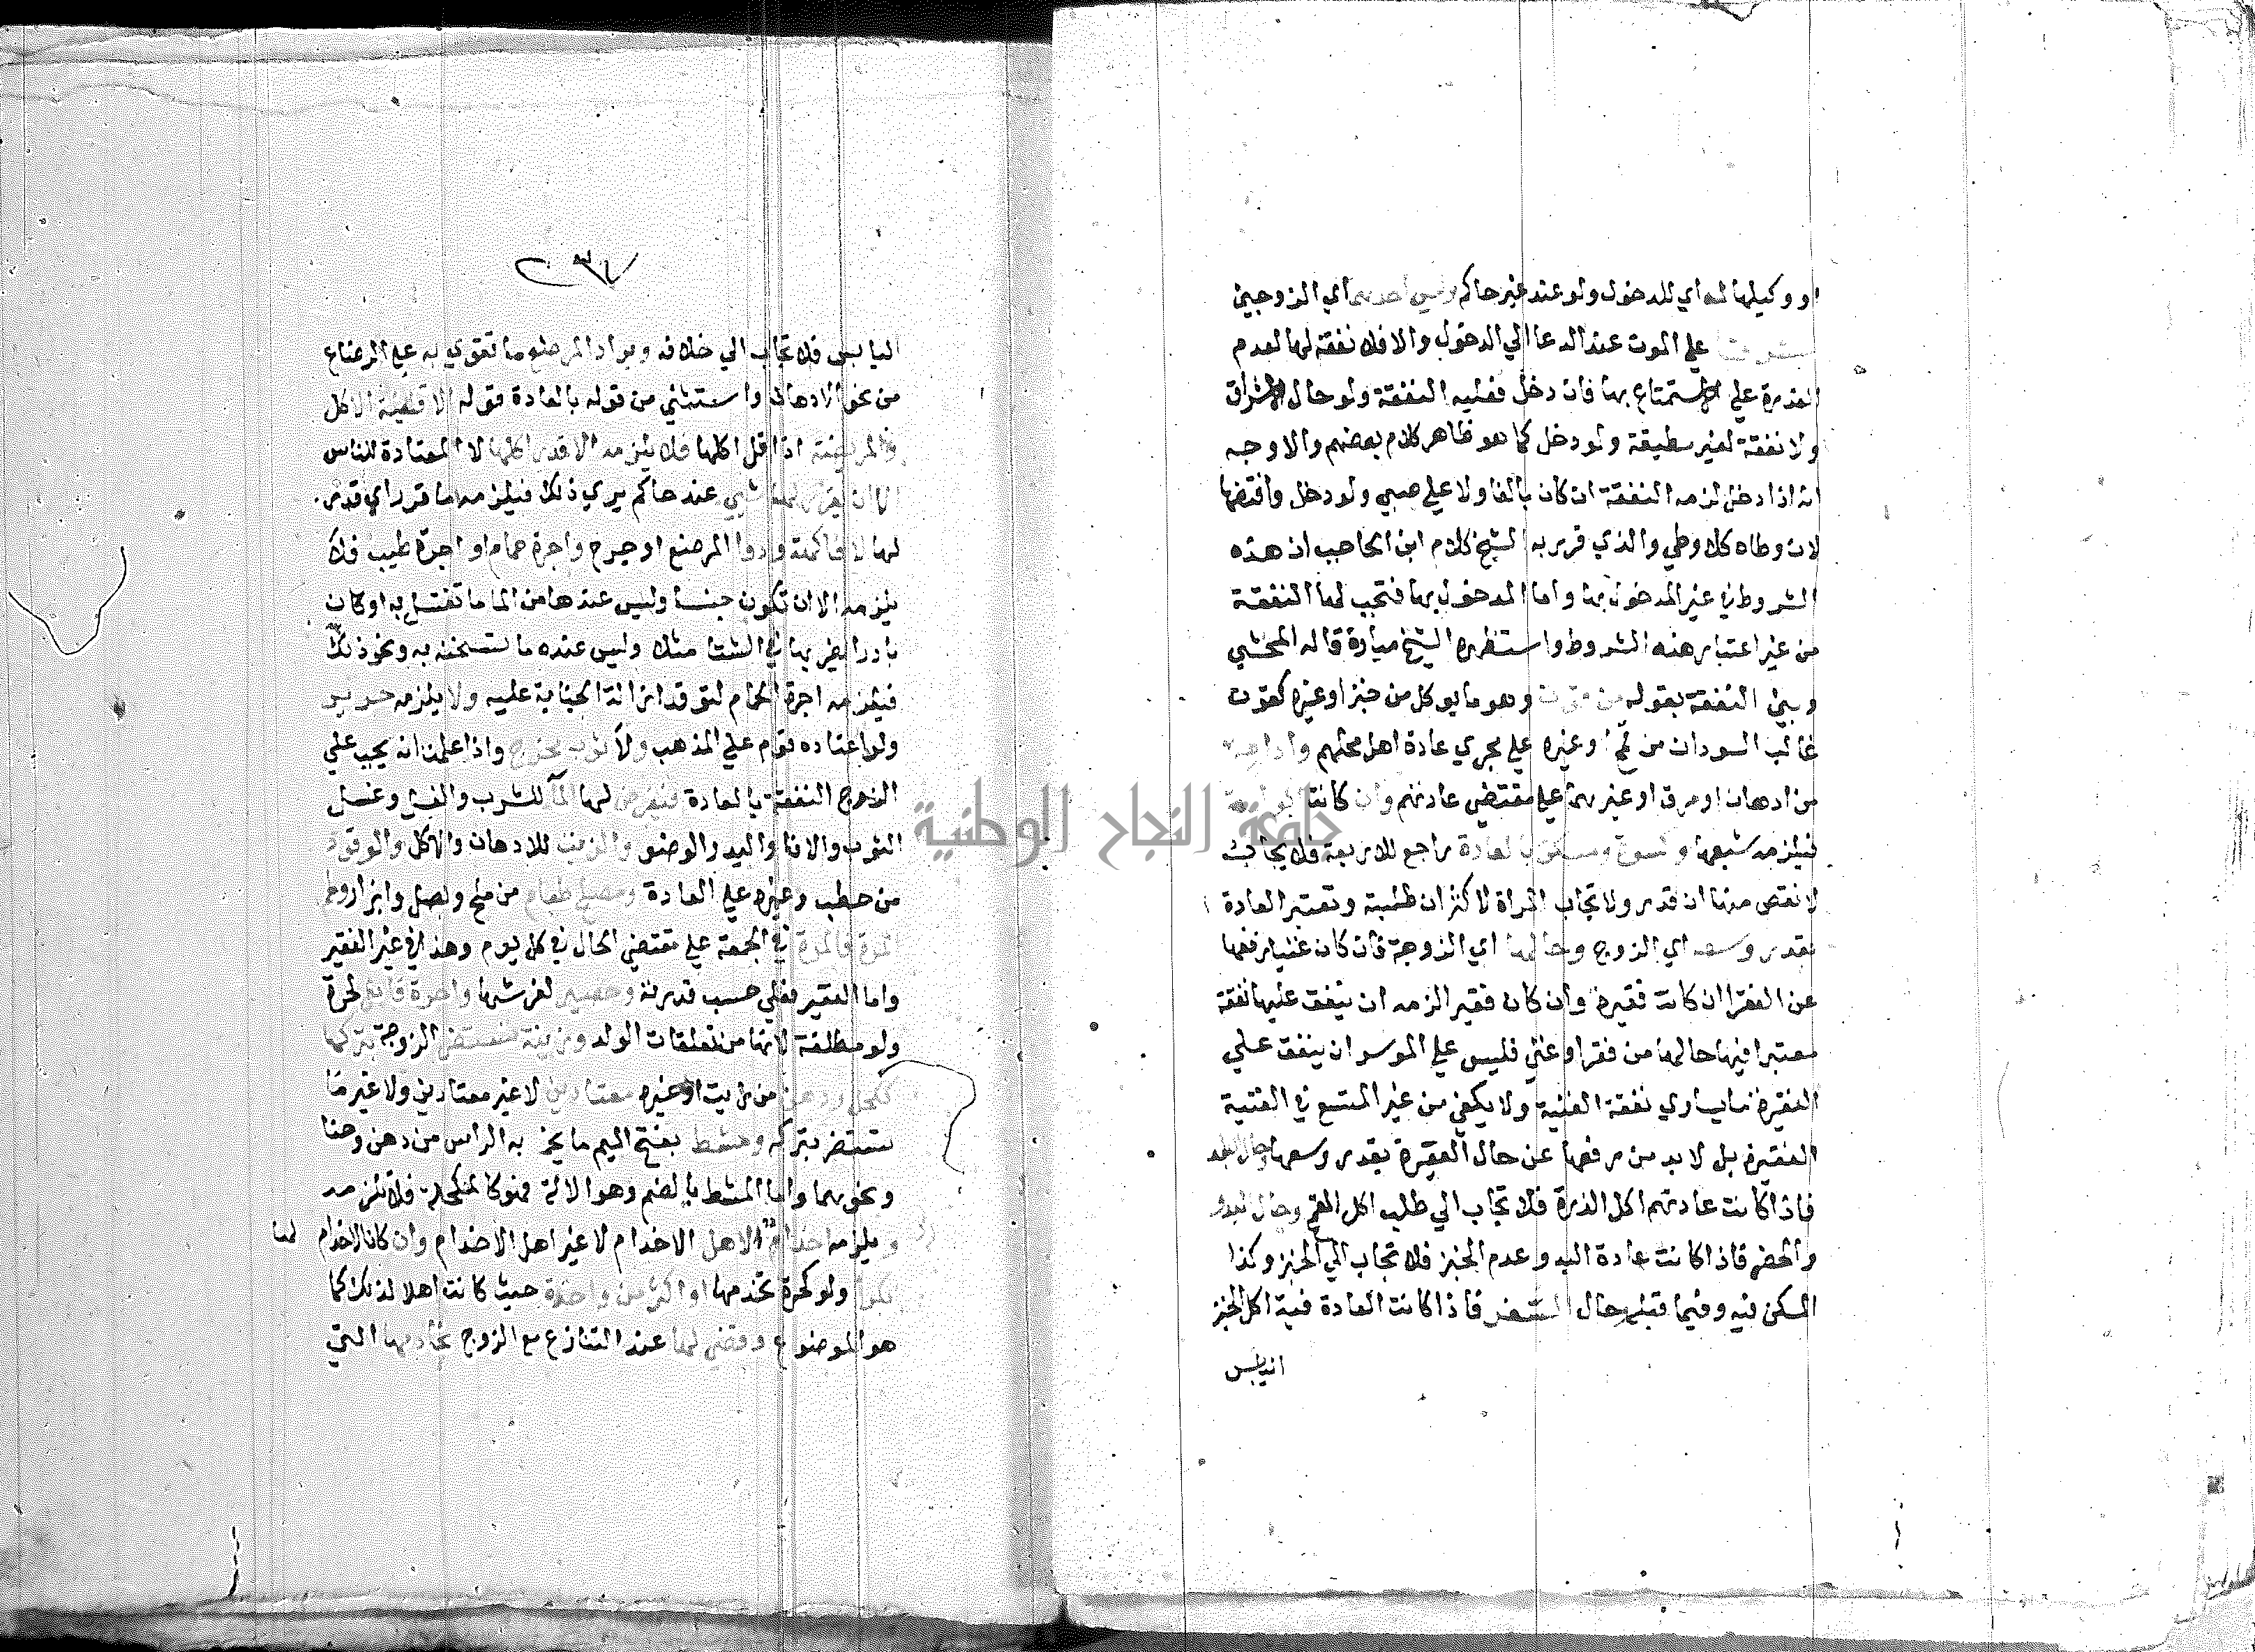 او وكيلها له اي للدخول ولو عند غير حاكم وليس احدهما اي الزوجين
على الموت عند الدعا الي الدخول والا فلا نفقة لها لعدم
القدرة علي الاستمتاع بها فان دخل فعليه النفقة ولو حال الاشراق
ولا نفقة لغير مطيقة ولو دخل كما هو ظاهر كلام بعضهم والاوجه
انه اذا دخل لزمه النفقة ان كان بالغا ولا علي صبي ولو دخل وافتضها
لان وطاه كلا وطي والذي قرر به الشيخ كلام ابن الحاجب ان هذه
الشروط في غير المدخول بها واما المدخول بها فتجب لها النفقة
من غير اعتبار هذه الشروط واستظهره الشيخ ميارة قاله المحشي
وبين النفقة بقوله من قوت وهو ما يوكل من خبز او غيره كقوت
غالب السودان من او غيره علي مجري عادة اهل محلهم وادام
من ادهان او مرق او غيرهما علي مقتضي عادتهم وان كانت اكولة
فيلزمه شبعها وكسوة ومسكن بالعادة راجع للاربعة فلا يجاب
لانقص منها ان قدر ولا تجاب المراة لاكثر ان طلبته وتعتبر العادة
بقدر وسعه اي الزوج وحالها اي الزوجة فان كان غنيا رفعها
عن الفقرا ان كانت فقيرة وان كان فقيرا لزمه ان ينفق عليها نفقة
معتبرا فيها حالها من فقر او غني فليس علي الموسر ان ينفق علي
الفقيرة ما يساوي نفقة الغنية ولا يكفي من غير المتسع في الغنية
الفقيرة بل لا بد من رفعها عن حال الفقيرة بقدر وسعها وحال البلد
فاذا كانت عادتهم اكل الذرة فلا تجاب الي طلب اكل القمح وحال البدو
والحضر فاذا كانت عادة البدو عدم الخبز فلا تجاب الي الخبز وكذا
السكن فيه وفيما قبله حال السفر فاذا كانت العادة فيه اكل الخبز
اليابس
اليابس فلا تجاب الي خلافه ويزاد المرضع ما تقوي به علي الرضاع
من نحو الادهان واستثني من قوله بالعادة قوله الا قليلة الاكل
والمريضة اذا قل اكلها فلا يلزمه الا قدر اكلها لا المعتادة للناس
الا ان يقرر لها شي عند حاكم يري ذلك فيلزمه ما قرر اي قدر
لها لا فاكهة ودوا المرض او جرح واجرة حمام او اجرة طبيب فلا
يلزمه الا ان تكون جنبا وليس عندها من الما ما تغتسل به او كان
باردا يضر بها في الشتا مثلا وليس عنده ما تسخنه به ونحو ذلك
فيلزمه اجرة الحمام لتوقد ازالة الجنابة عليه ولا يلزمه حرير
ولو اعتاده قوم علي المذهب ولا ثوب مخرج واذا علمت انه يجب علي
الزوج النفقة بالعادة فيفرض لها الما للشرب والغسل وغسل
الثوب والانا واليد والوضو والزيت للادهان والاكل والوقود
من حطب وغيره علي العادة ومصلح طعام من ملح وبصل وابزار
المرة فالمرة في الجمعة علي مقتضي الحال في كل يوم وهذا في غير الفقير
واما الفقير فعلي حسب قدرته وحصير لفرشها واجرة قابلة لحرة
ولو مطلقة لانها من تعلقات الولد وزينة تستضر الزوجة بتركها
ككحل ودهن من زيت او غيره معتادين لا غير معتادين ولا غير ما
تستضر بتركه ومشط بفتح الميم ما يخمر به الراس من دهن وحنا
ونحوهما واما المشط بالضم وهو الالة فهو كالمكحلة فلا تلزمه
ويلزمه اخدام الاهل الاخدام لا غير اهل الاخدام وان كان الاخدام لها
بكرا ولو كحرة تخدمها او اكثر من واحدة حيث كانت اهلا لذلك كما
هو الموضوع وقضي لها عند التنازع مع الزوج بخادمها التي